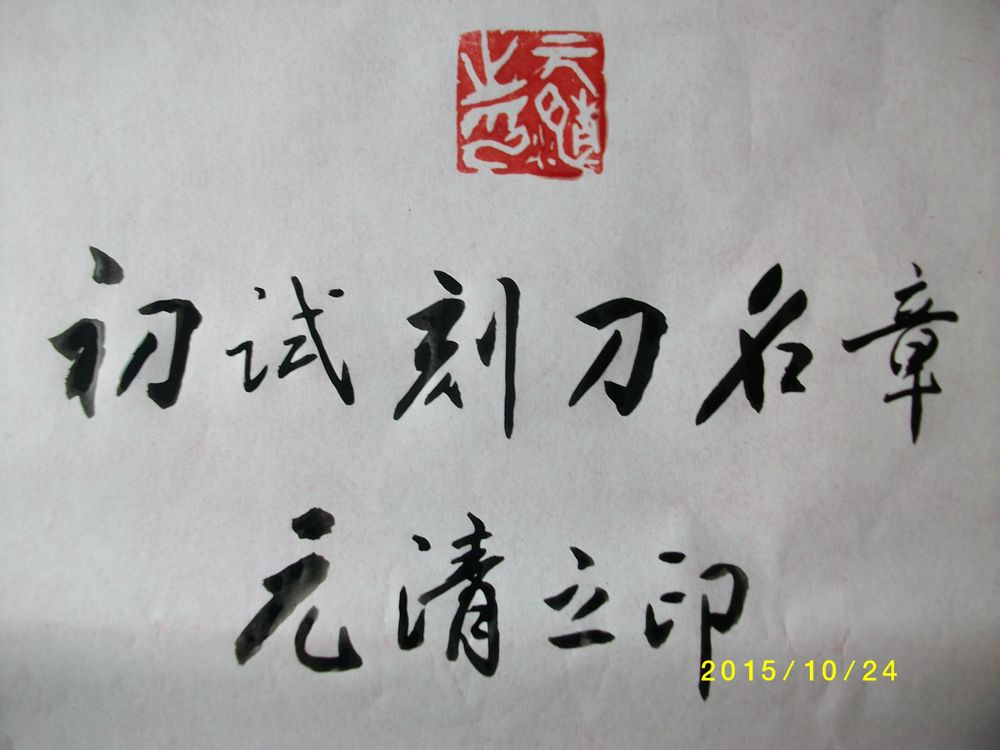 元清
之印
初试刻刀名章
元清之印
2015/10/24